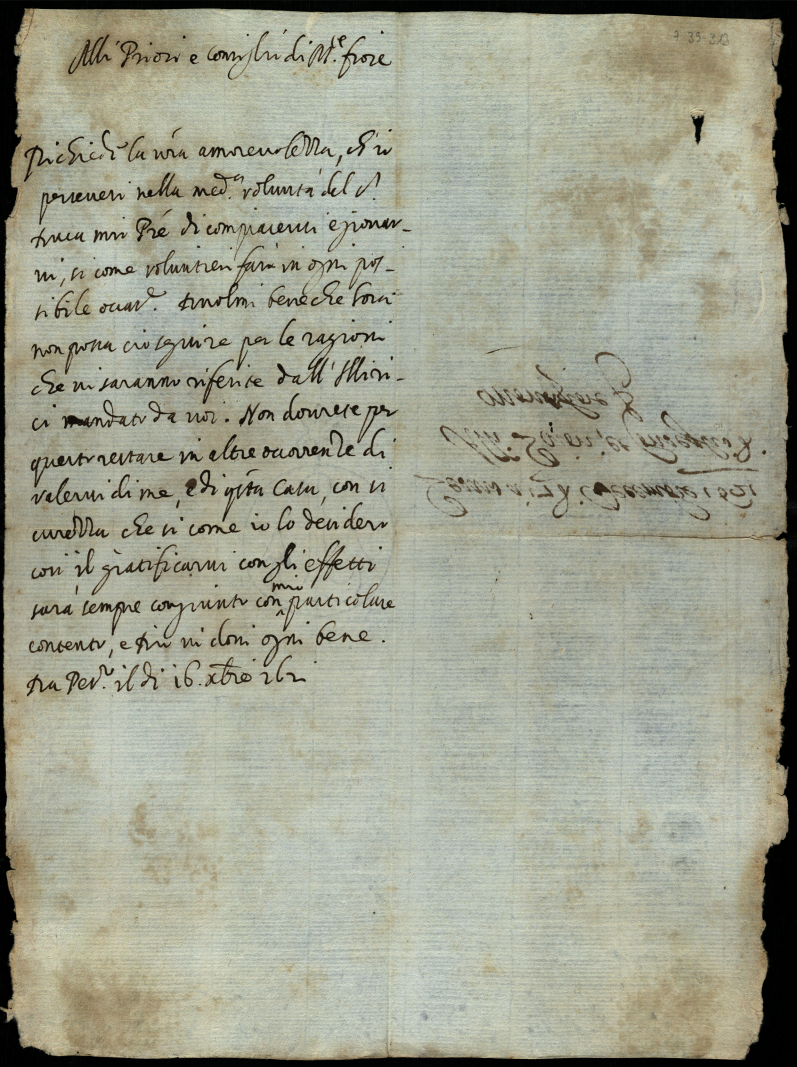 Alli Priori e consiglri di M.te fiore
Richiede la vra amorevolezza, ch'io
perseveri nella med.a volunta del S.
Duca mio Pre di compiacervi e giovar-
vi, si come voluntieri faro in ogni pos-
sibile occas.e Duolmi bene che forsi
non possa cio seguire per le ragioni
che vi saranno riferite dall'
mandato da voi. Non dovrete per
questo restare in altre occorrenze di
valervi di me, e di qsta Casa, con si
curezza che si come io lo desidero
cosi il gratificarvi con gli effetti
sara sempre congiunto con mio particolare
contento, e Dio vi doni ogni bene.
Da il di 16. xbre 1621